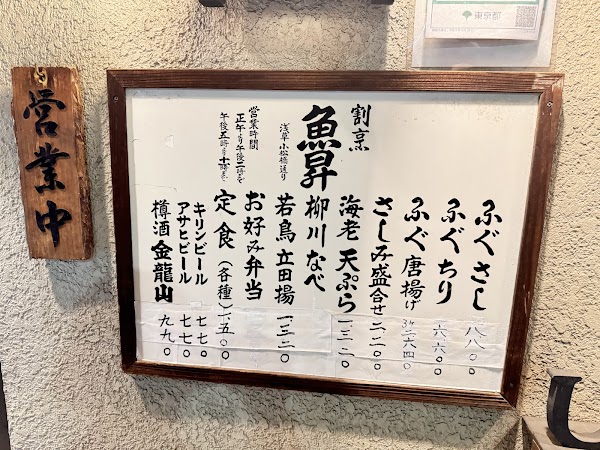 営業中
東京都
割烹
魚昇
浅草小松橋通り
営業時間
正午より午後二時まで
午後五時より十時まで
ふぐさし
ふぐちり
ふぐ唐揚げ 3ケ 二六四〇
さしみ盛合せ 二.二〇〇
海老天ぷら 一.三二〇
柳川なべ
若鳥立田揚 一.三二〇
お好み弁当
定食(各種)一.五〇〇
キリンビール 七七〇
アサヒビール 七七〇
樽酒金龍山 九九〇